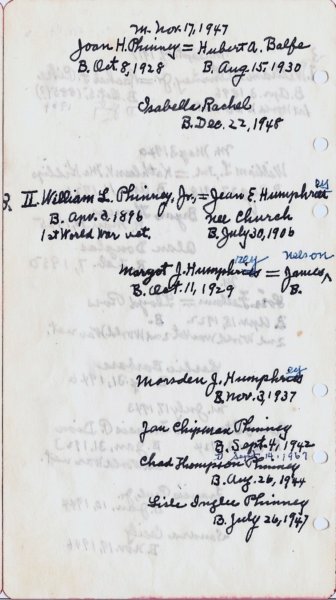 m. Nov. 17, 1947
Joan H. Phinney = Hubert A. Balfe
B. Oct. 8, 1928 B. Aug. 15, 1930
Isabelle Rachel
B. Dec. 22, 1948
2 II. William L. Phinney, Jr., = Jean E. Humphries
B. Apr. 3, 1896 nee Church
1st World War vet. B. July 30, 1906
Nelson
Margot J. Humphrey = James
B. Oct. 11, 1929 B.
Marsden J. Humphrey
B. Nov. 3, 1937
Jan Chipman Phinney
B. Sept. 4, 1942
D. Sept. 1967
Chad Thompson Phinney
B. Aug. 26, 1944
Lisle Inglee Phinney
B. July 26, 1947